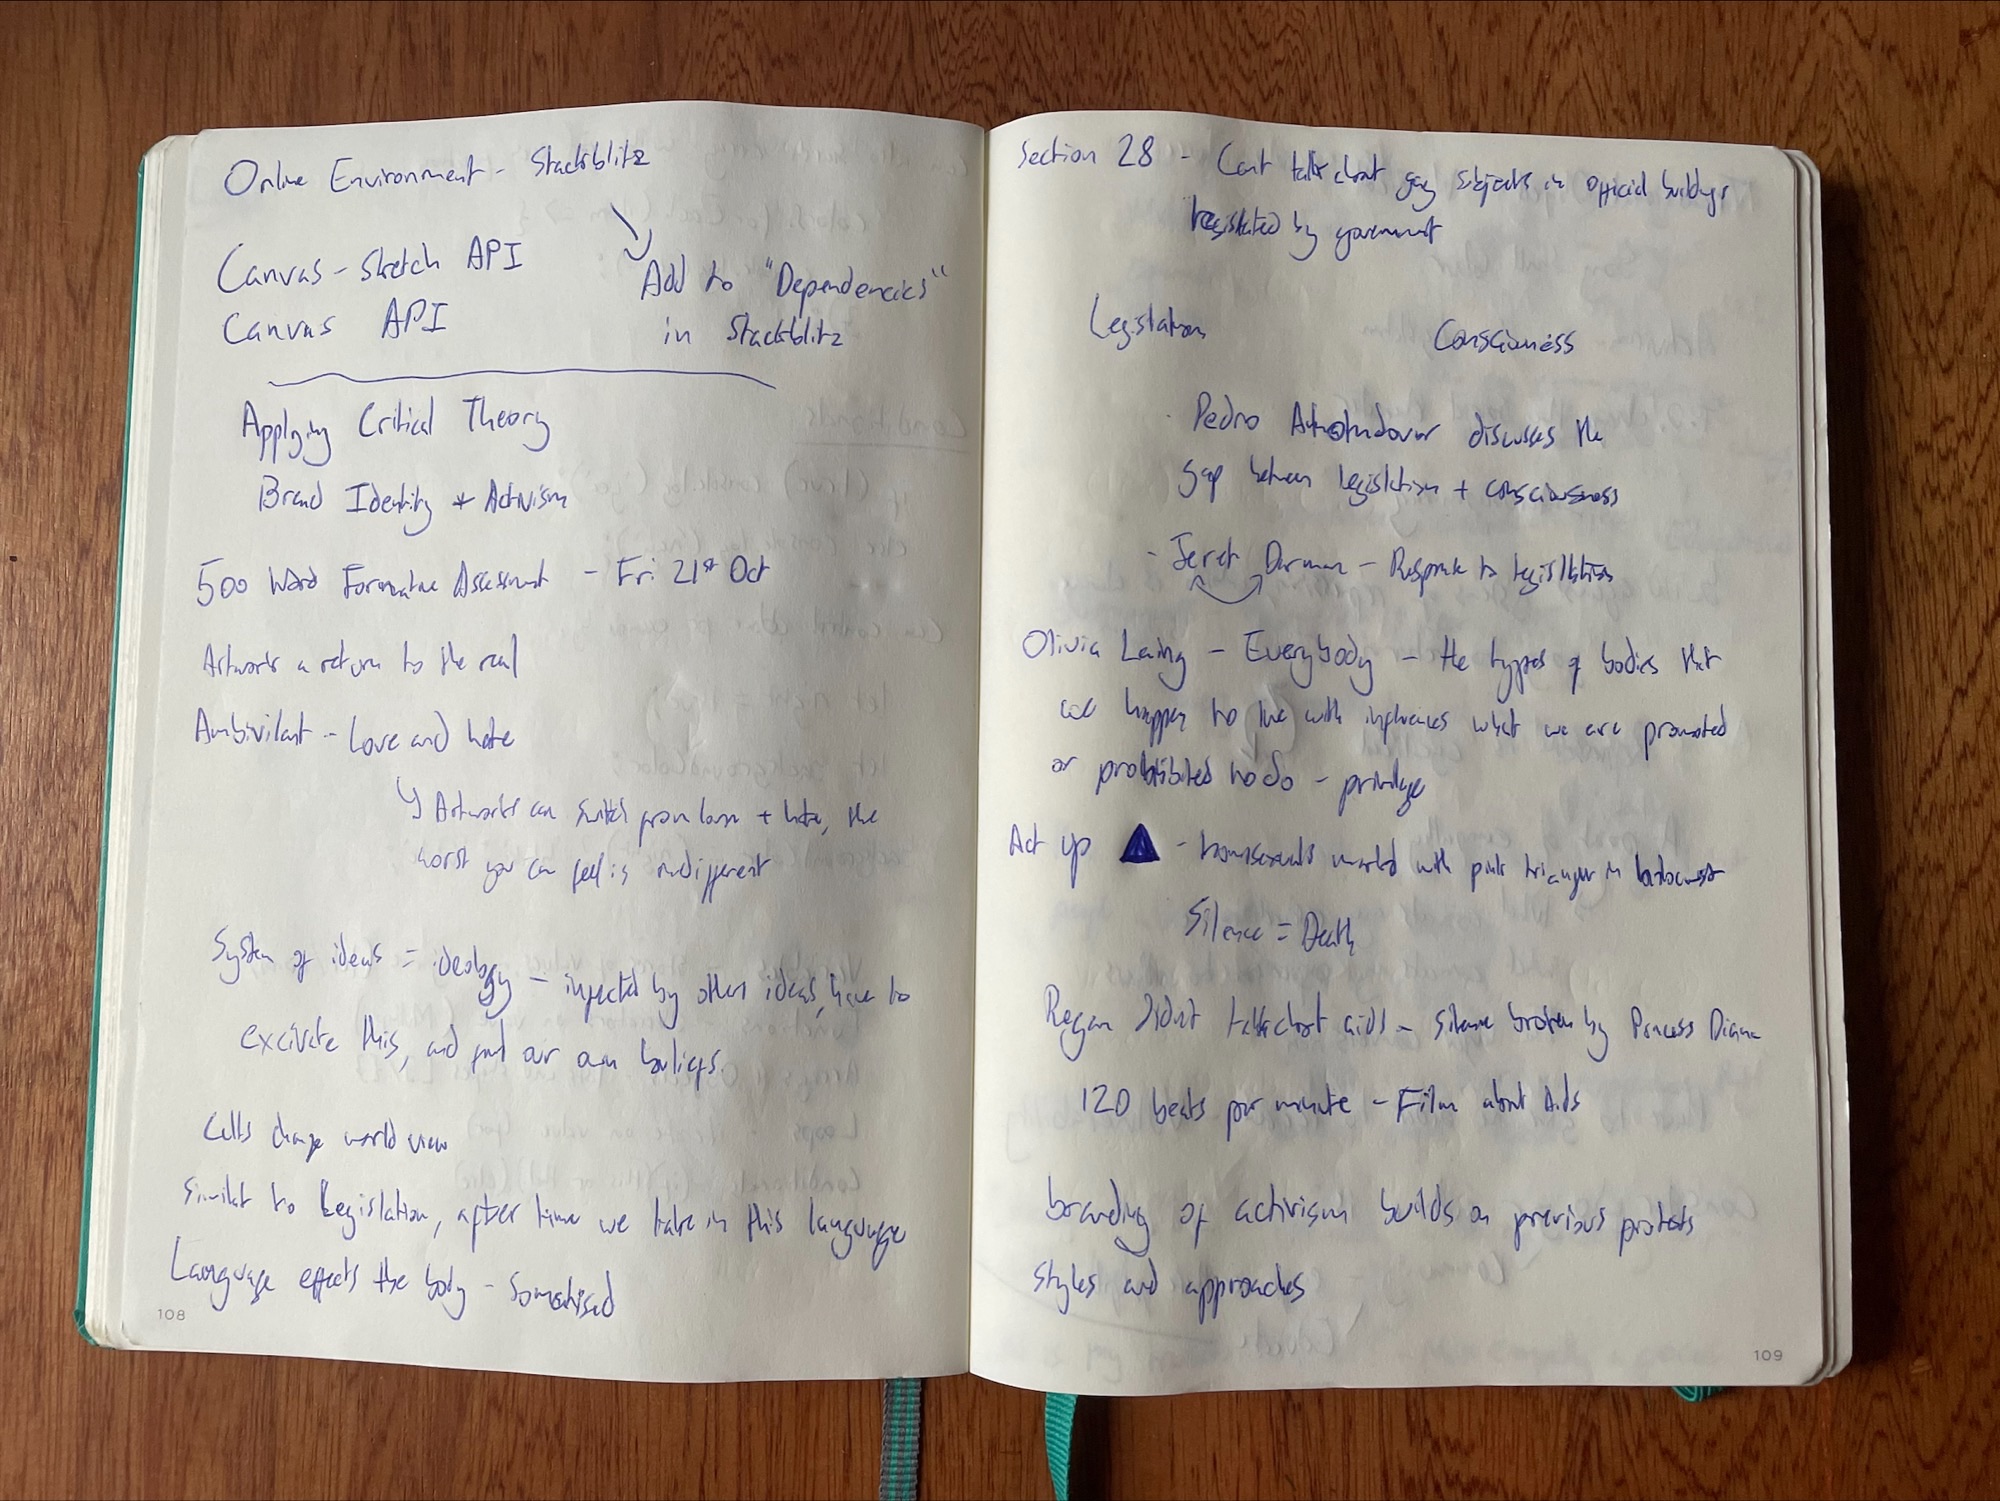 Online Environment - Stackblitz
Canvas-Sketch API
Canvas API
Add to "Dependencies"
in Stackblitz
Applying Critical Theory
Brand Identity + Activism
500 Word Formative Assessment - Fri 21st Oct
Artworks a return to the real
Ambivilant - Love and hate
Artworks can switch from love + hate, the
worst you can feel is indifferent
System of ideas = ideology - injected by other ideas, have to
excivate this, and put our own beliefs.
Cults change world view
Similar to Legislation, after time we take in this language
Language effects the body - Somatised
108
Section 28 - Cant talk about gay subjects in official buildings
legislated by government
Legislation
Consciousness
- Pedro discusses the
gap between legislation + consciousness
- Jeret Darman - Response to legislation
Olivia Laing - Everybody - the types of bodies that
we happen to live with influences what we are promoted
or prohibited to do - privilege
Act up - homosexuals marked with pink triangle in holocaust
Silence = Death
Regan didnt talk about aids - silence broken by Princess Diana
120 beats per minute - Film about Aids
branding of activism builds on previous protests
styles and approaches
109